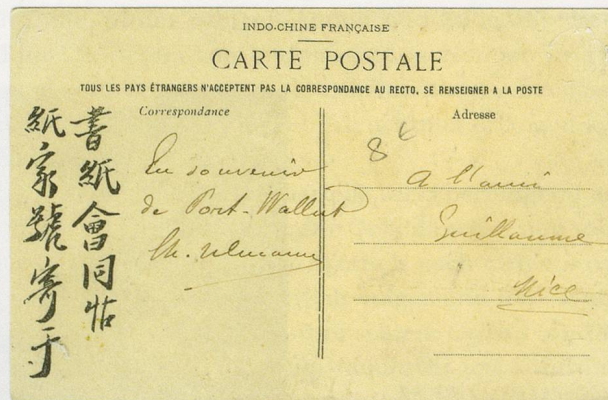 INDO-CHINE FRANÇAISE
CARTE POSTALE
TOUS LES PAYS ÉTRANGERS N'ACCEPTENT PAS LA CORRESPONDANCE AU RECTO, SE RENSEIGNER A LA POSTE
Correspondance
En souvenir
de Port-Wallut
Ch. Ulmann
Adresse
8
A l'ami
Guillaume
Nice
書紙會同帖
紙家號寄于